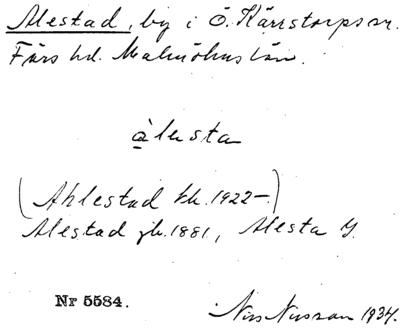 Alestad, by i Ö. Kärrstorps sn.
Färs hd. Malmöhus län.
àlesta
(Ahlestad kb. 1922–.)
Alestad jb. 1881, Alesta
Nr 5584.
Nils Nilsson 1934.